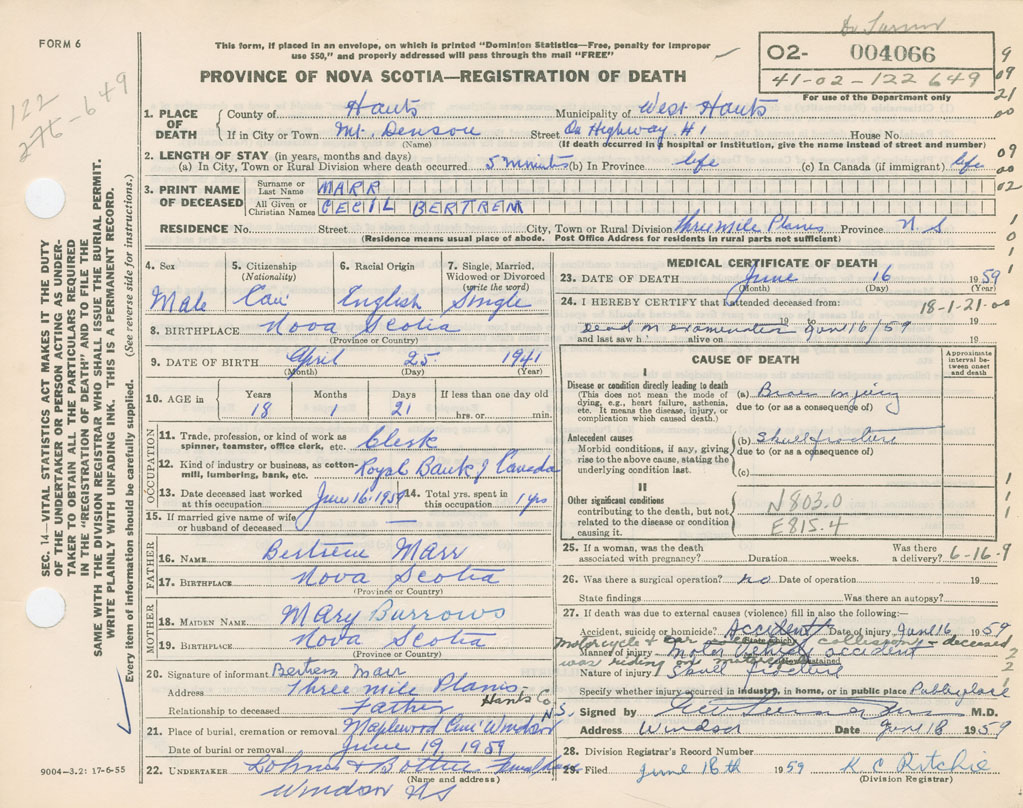 FORM 6
This form, if placed in an envelope, on which is printed "Dominion Statistics—Free, penalty for improper
use $50," and properly addressed will pass through the mail "FREE"
PROVINCE OF NOVA SCOTIA—REGISTRATION OF DEATH
02- 004066
41-02-122 649
For use of the Department only
122
649
9
09
21
00
09
00
02
SEC. 14—VITAL STATISTICS ACT MAKES IT THE DUTY
OF THE UNDERTAKER OR PERSON ACTING AS UNDER-
TAKER TO OBTAIN ALL THE PARTICULARS REQUIRED
IN THE "REGISTRATION OF DEATH" AND TO FILE THE
SAME WITH THE DIVISION REGISTRAR WHO SHALL ISSUE THE BURIAL PERMIT.
WRITE PLAINLY WITH UNFADING INK. THIS IS A PERMANENT RECORD.
Every item of information should be carefully supplied. (See reverse side for instructions.)
1. PLACE OF DEATH
County of Hants Municipality of West Hants
If in City or Town Mt. Denson Street On Highway #1 House No.
(Name) (If death occurred in hospital or Institution, give the name instead of street and number)
2. LENGTH OF STAY (in years, months and days)
(a) In City, Town or Rural Division where death occurred 5 minuts (b) In Province life (c) In Canada (if immigrant) life
3. PRINT NAME OF DECEASED
Surname or Last Name MARR
All Given or Christian Names CECIL BERTREM
RESIDENCE No. Street City, Town or Rural Division Three Mile Plains Province N.S
(Residence means usual place of abode. Post Office Address for residents in rural parts not sufficient)
4. Sex 5. Citizenship (Nationality) 6. Racial Origin 7. Single, Married, Widowed or Divorced (write the word)
Male Can English Single
8. BIRTHPLACE Nova Scotia
(Province or Country)
9. DATE OF BIRTH April 25 1941
(Month) (Day) (Year)
10. AGE in Years Months Days If less than one day old
18 1 21 hrs. or min.
OCCUPATION
11. Trade, profession, or kind of work as spinner, teamster, office clerk, etc. Clerk
12. Kind of industry or business, as cotton-mill, lumbering, bank, etc. Royal Bank of Canada
13. Date deceased last worked at this occupation June 16-1959 14. Total yrs. spent in this occupation 1 yrs
15. If married give name of wife or husband of deceased —
FATHER
16. NAME Bertrem Marr
17. BIRTHPLACE Nova Scotia
(Province or Country)
MOTHER
18. MAIDEN NAME Mary Burrows
19. BIRTHPLACE Nova Scotia
(Province or Country)
20. Signature of informant Bertrem Marr
Address Three Mile Plains- Hants Co N.S.
Relationship to deceased Father
21. Place of burial, cremation or removal Maplewood Cem' Windsor
Date of burial or removal June 19 1959
22. UNDERTAKER
(Name and address)
Windsor NS
9004-3.2: 17-6-55
MEDICAL CERTIFICATE OF DEATH
23. DATE OF DEATH June 16 1959
(Month) (Day) (Year)
24. I HEREBY CERTIFY that I attended deceased from:
18-1-21-00
19 19
Dead M examender June 16/59
and last saw h alive on 19
CAUSE OF DEATH
Approximate interval between onset and death
I
Disease or condition directly leading to death
(This does not mean the mode of dying, e.g., heart failure, asthenia, etc. It means the disease, injury, or complication which caused death.)
(a) Brain injury
due to (or as a consequence of)
Antecedent causes
Morbid conditions, if any, giving rise to the above cause, stating the underlying condition last.
(b) Skull fracture
due to (or as a consequence of)
(c)
II
Other significant conditions
contributing to the death, but not related to the disease or condition causing it.
N803.0
E815.4
25. If a woman, was the death associated with pregnancy? Duration weeks. Was there a delivery? 6-16-9
26. Was there a surgical operation? no Date of operation 19
State findings Was there an autopsy?
27. If death was due to external causes (violence) fill in also the following:—
Accident, suicide or homicide? Accident Date of injury June 16 1959
(State which)
motorcycle & car collision - deceased
Manner of injury Motor Vehicle accident
was riding on motorcycle
Nature of injury Skull fracture
Specify whether injury occurred in industry, in home, or in public place Public place
Signed by M.D.
Address Windsor Date June 18 1959
28. Division Registrar's Record Number
29. Filed June 18th 1959 K C Ritchie
(Division Registrar)